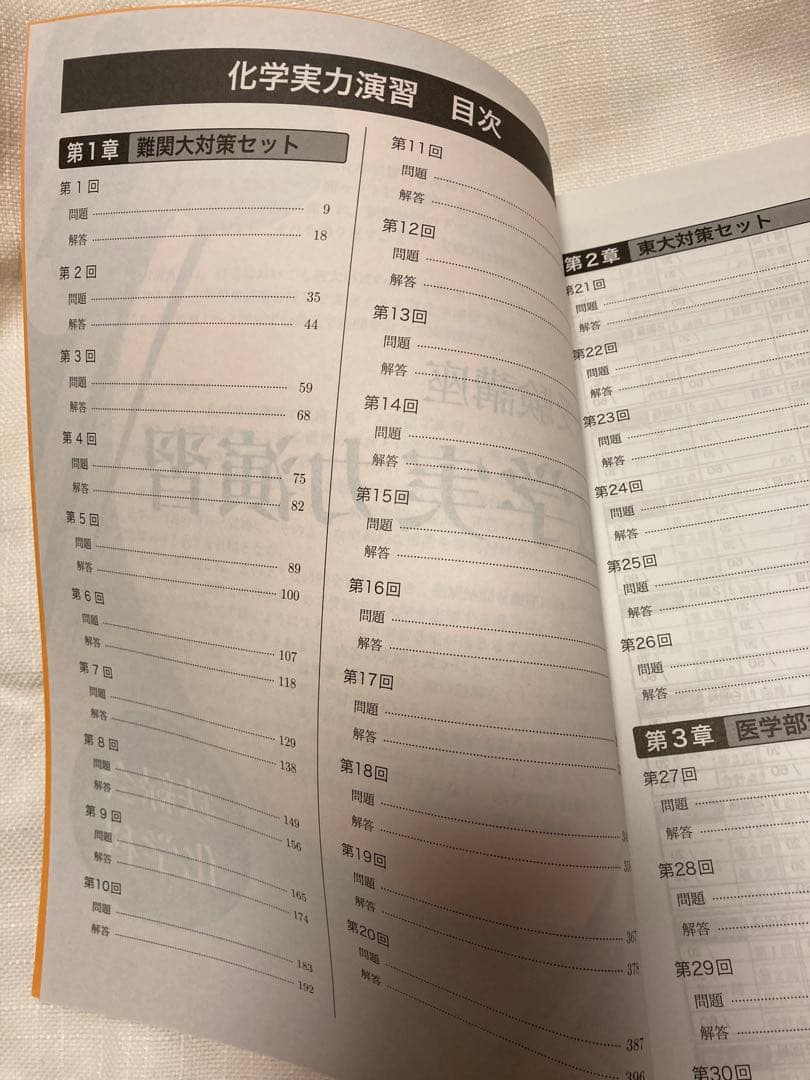 化学実力演習 目次
第1章 難関大対策セット
第1回
問題 9
解答 18
第2回
問題 35
解答 44
第3回
問題 59
解答 68
第4回
問題 75
解答 82
第5回
問題 89
解答 100
第6回
問題 107
解答 118
第7回
問題 129
解答 138
第8回
問題 149
解答 156
第9回
問題 165
解答 174
第10回
問題 183
解答 192
第11回
問題
解答
第12回
問題
解答
第13回
問題
解答
第14回
問題
解答
第15回
問題
解答
第16回
問題
解答
第17回
問題
解答
第18回
問題
解答
第19回
問題 367
解答 378
第20回
問題 387
解答 396
第2章 東大対策セット
第21回
問題
解答
第22回
問題
解答
第23回
問題
解答
第24回
問題
解答
第25回
問題
解答
第26回
問題
解答
第3章 医学部
第27回
問題
解答
第28回
問題
解答
第29回
問題
解答
第30回